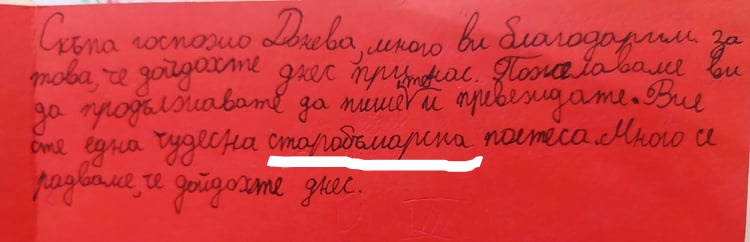 Скъпа госпожо Джева, много ви благодарим за
това, че дойдохте днес при нас. Пожелаваме ви
да продължавате да пишете и превеждате. Вие
сте една чудесна старобългарска поетеса. Много се
радваме, че дойдохте днес.